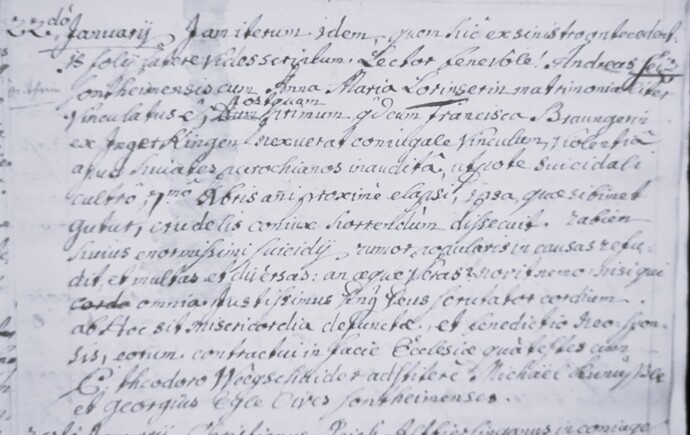 22dô Januarij Jam iterum idem, quem hîc ex sinistro antecedent-
is folij latere vides scriptum, Lector benevole! Andreas
Sontheimensis cum Anna Maria Lorinserin matrimonialiter
vinculatus ê, postquam primum qd cum Francisca Braungerin
ex nexuerat coniugale vinculum, violentiâ
apud huiates parochianos inauditâ, utpote suicidali
cultrô, 7mô 8bris añi proximè elapsi, ipsa, quae sibimet
gutur, crudelis coniux horrendùm dissecuit. Rabiem
huius enormissimi suicidij rumor popularis in causas refu-
dit, et multas et diversas: an aeque veras? norit nemo nisi qui
omnia iustissimus Deus scrutator cordium.
ab Hoc sit misericordia defunctae, et benedictio Neo-spon-
sis, eorum contractui in facie Ecclesiae quà testes cum
Theodoro adstitêre Michaël
et Georgius Egle Cives Sontheimenses.
Januarij Christianus in coniuge